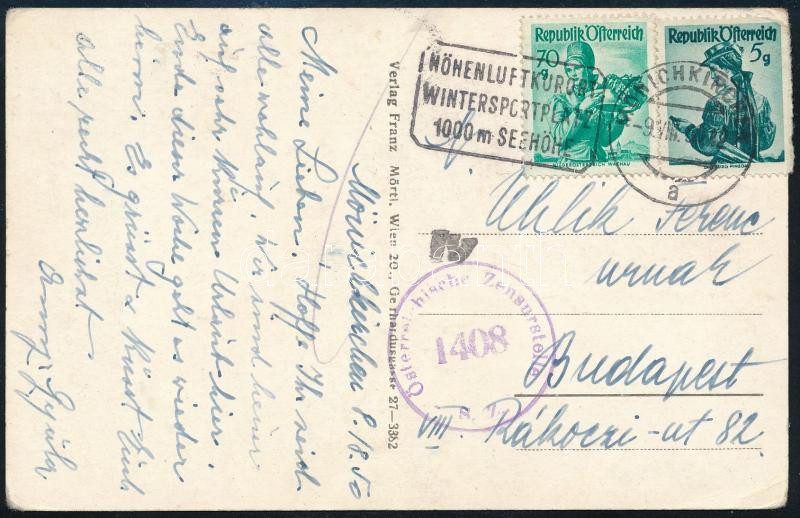 Mönichkirchen 8./8.50
Meine Lieben. Hoffe Ihr seid
alle wohlauf. Wir sind heuer
auf sehr kurzen Urlaub hier.
Ende dieser Woche geht es wieder
heim. Es grüsst & küsst Euch
alle recht herzlichst
Verlag Franz Mörtl, Wien 20., Gerhardusgasse 27-3382
HÖHENLUFTKURORT
WINTERSPORTPLATZ
1000 m SEEHÖHE
Republik Österreich
70
g
NIEDERÖSTERREICH WACHAU
Republik Österreich
5g
a
Österreichische Zensurstelle
1408
Uhlik Ferenc
urnak
Budapest
VIII. Rákoczi-ut 82.